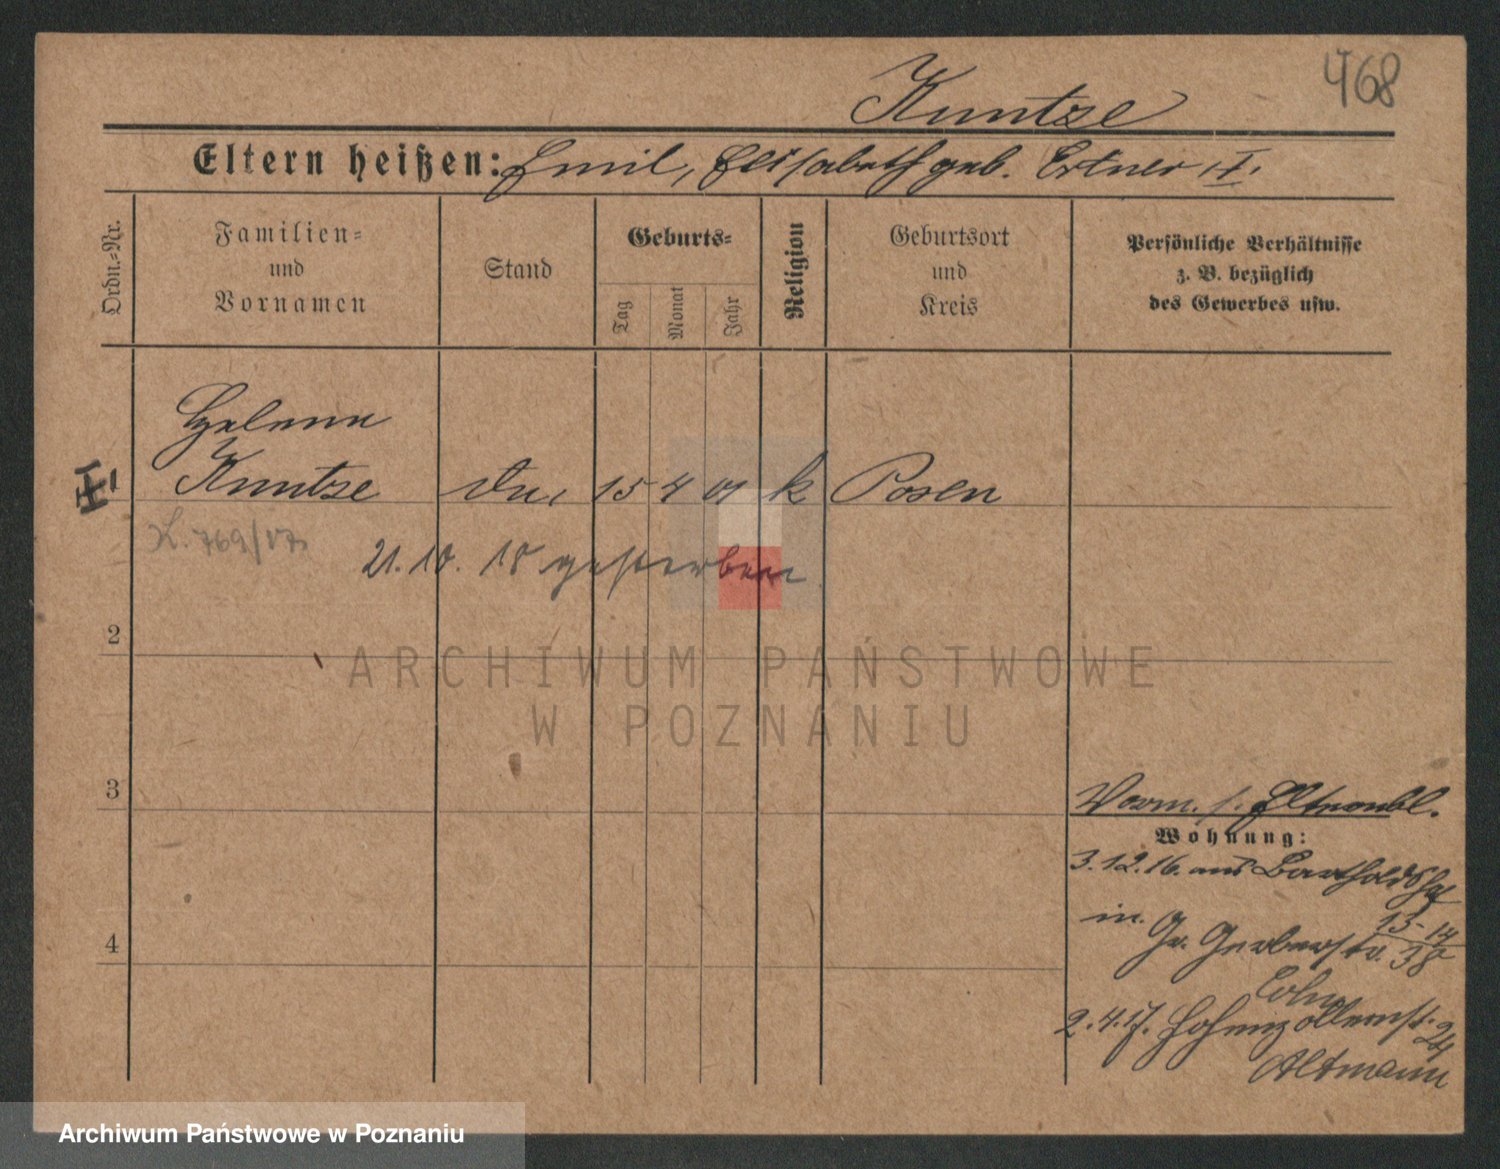 468
Kuntze
Eltern heißen: Emil, Elisabeth geb. Ertner
Ordn.-Nr.
Familien-
und
Vornamen
Stand
Geburts-
Tag
Monat
Jahr
Religion
Geburtsort
und
Kreis
Persönliche Verhältnisse
z. B. bezüglich
des Gewerbes usw.
Helene
Kuntze 15 4 01 k Posen
21.10. 18 gestorben
2
3
4
Vorm. s. Elternbl.
Wohnung:
3.12.16. aus Bartholdshof
in. 13-14
Gr. Gerberstr. 38
2.4.17. Hohenzollernstr. 24
Altmann
ARCHIWUM PAŃSTWOWE
W POZNANIU
Archiwum Państwowe w Poznaniu